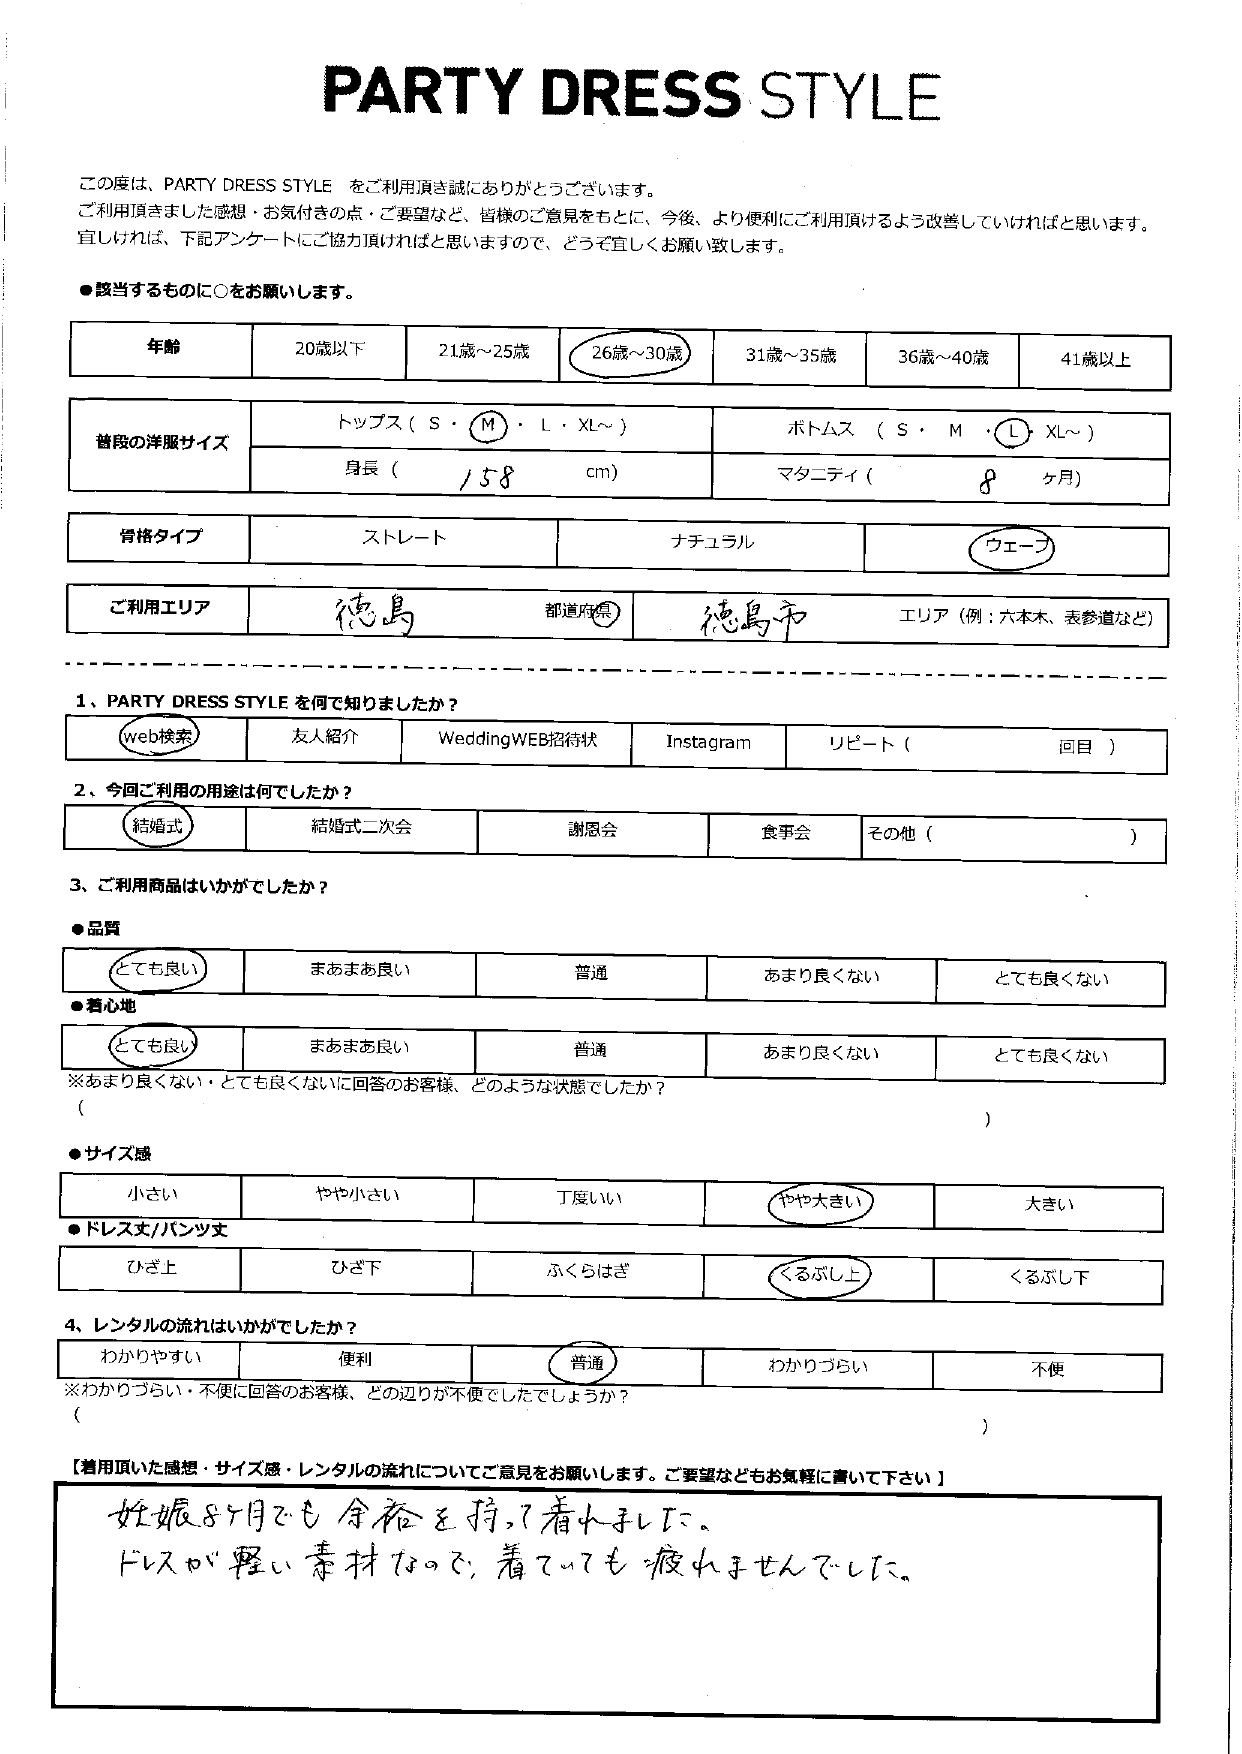 PARTY DRESS STYLE
この度は、PARTY DRESS STYLE をご利用頂き誠にありがとうございます。
ご利用頂きました感想・お気付きの点・ご要望など、皆様のご意見をもとに、今後、より便利にご利用頂けるよう改善していければと思います。
宜しければ、下記アンケートにご協力頂ければと思いますので、どうぞ宜しくお願い致します。
●該当するものに○をお願いします。
年齢 20歳以下 21歳～25歳 26歳～30歳 31歳～35歳 36歳～40歳 41歳以上
普段の洋服サイズ トップス ( S ・ M ・ L ・ XL～ ) ボトムス ( S ・ M ・ L ・ XL～ )
身長 ( 158 cm) マタニティ ( 8 ヶ月)
骨格タイプ ストレート ナチュラル ウェーブ
ご利用エリア 徳島 都道府県 徳島市 エリア（例：六本木、表参道など）
1、PARTY DRESS STYLE を何で知りましたか？
web検索 友人紹介 WeddingWEB招待状 Instagram リピート ( 回目 )
2、今回ご利用の用途は何でしたか？
結婚式 結婚式二次会 謝恩会 食事会 その他 ( )
3、ご利用商品はいかがでしたか？
●品質
とても良い まあまあ良い 普通 あまり良くない とても良くない
●着心地
とても良い まあまあ良い 普通 あまり良くない とても良くない
※あまり良くない・とても良くないに回答のお客様、どのような状態でしたか？
( )
●サイズ感
小さい やや小さい 丁度いい やや大きい 大きい
●ドレス丈/パンツ丈
ひざ上 ひざ下 ふくらはぎ くるぶし上 くるぶし下
4、レンタルの流れはいかがでしたか？
わかりやすい 便利 普通 わかりづらい 不便
※わかりづらい・不便に回答のお客様、どの辺りが不便でしたでしょうか？
( )
【着用頂いた感想・サイズ感・レンタルの流れについてご意見をお願いします。ご要望などもお気軽に書いて下さい】
妊娠8ヶ月でも余裕を持って着れました。
ドレスが軽い素材なので、着ていても疲れませんでした。